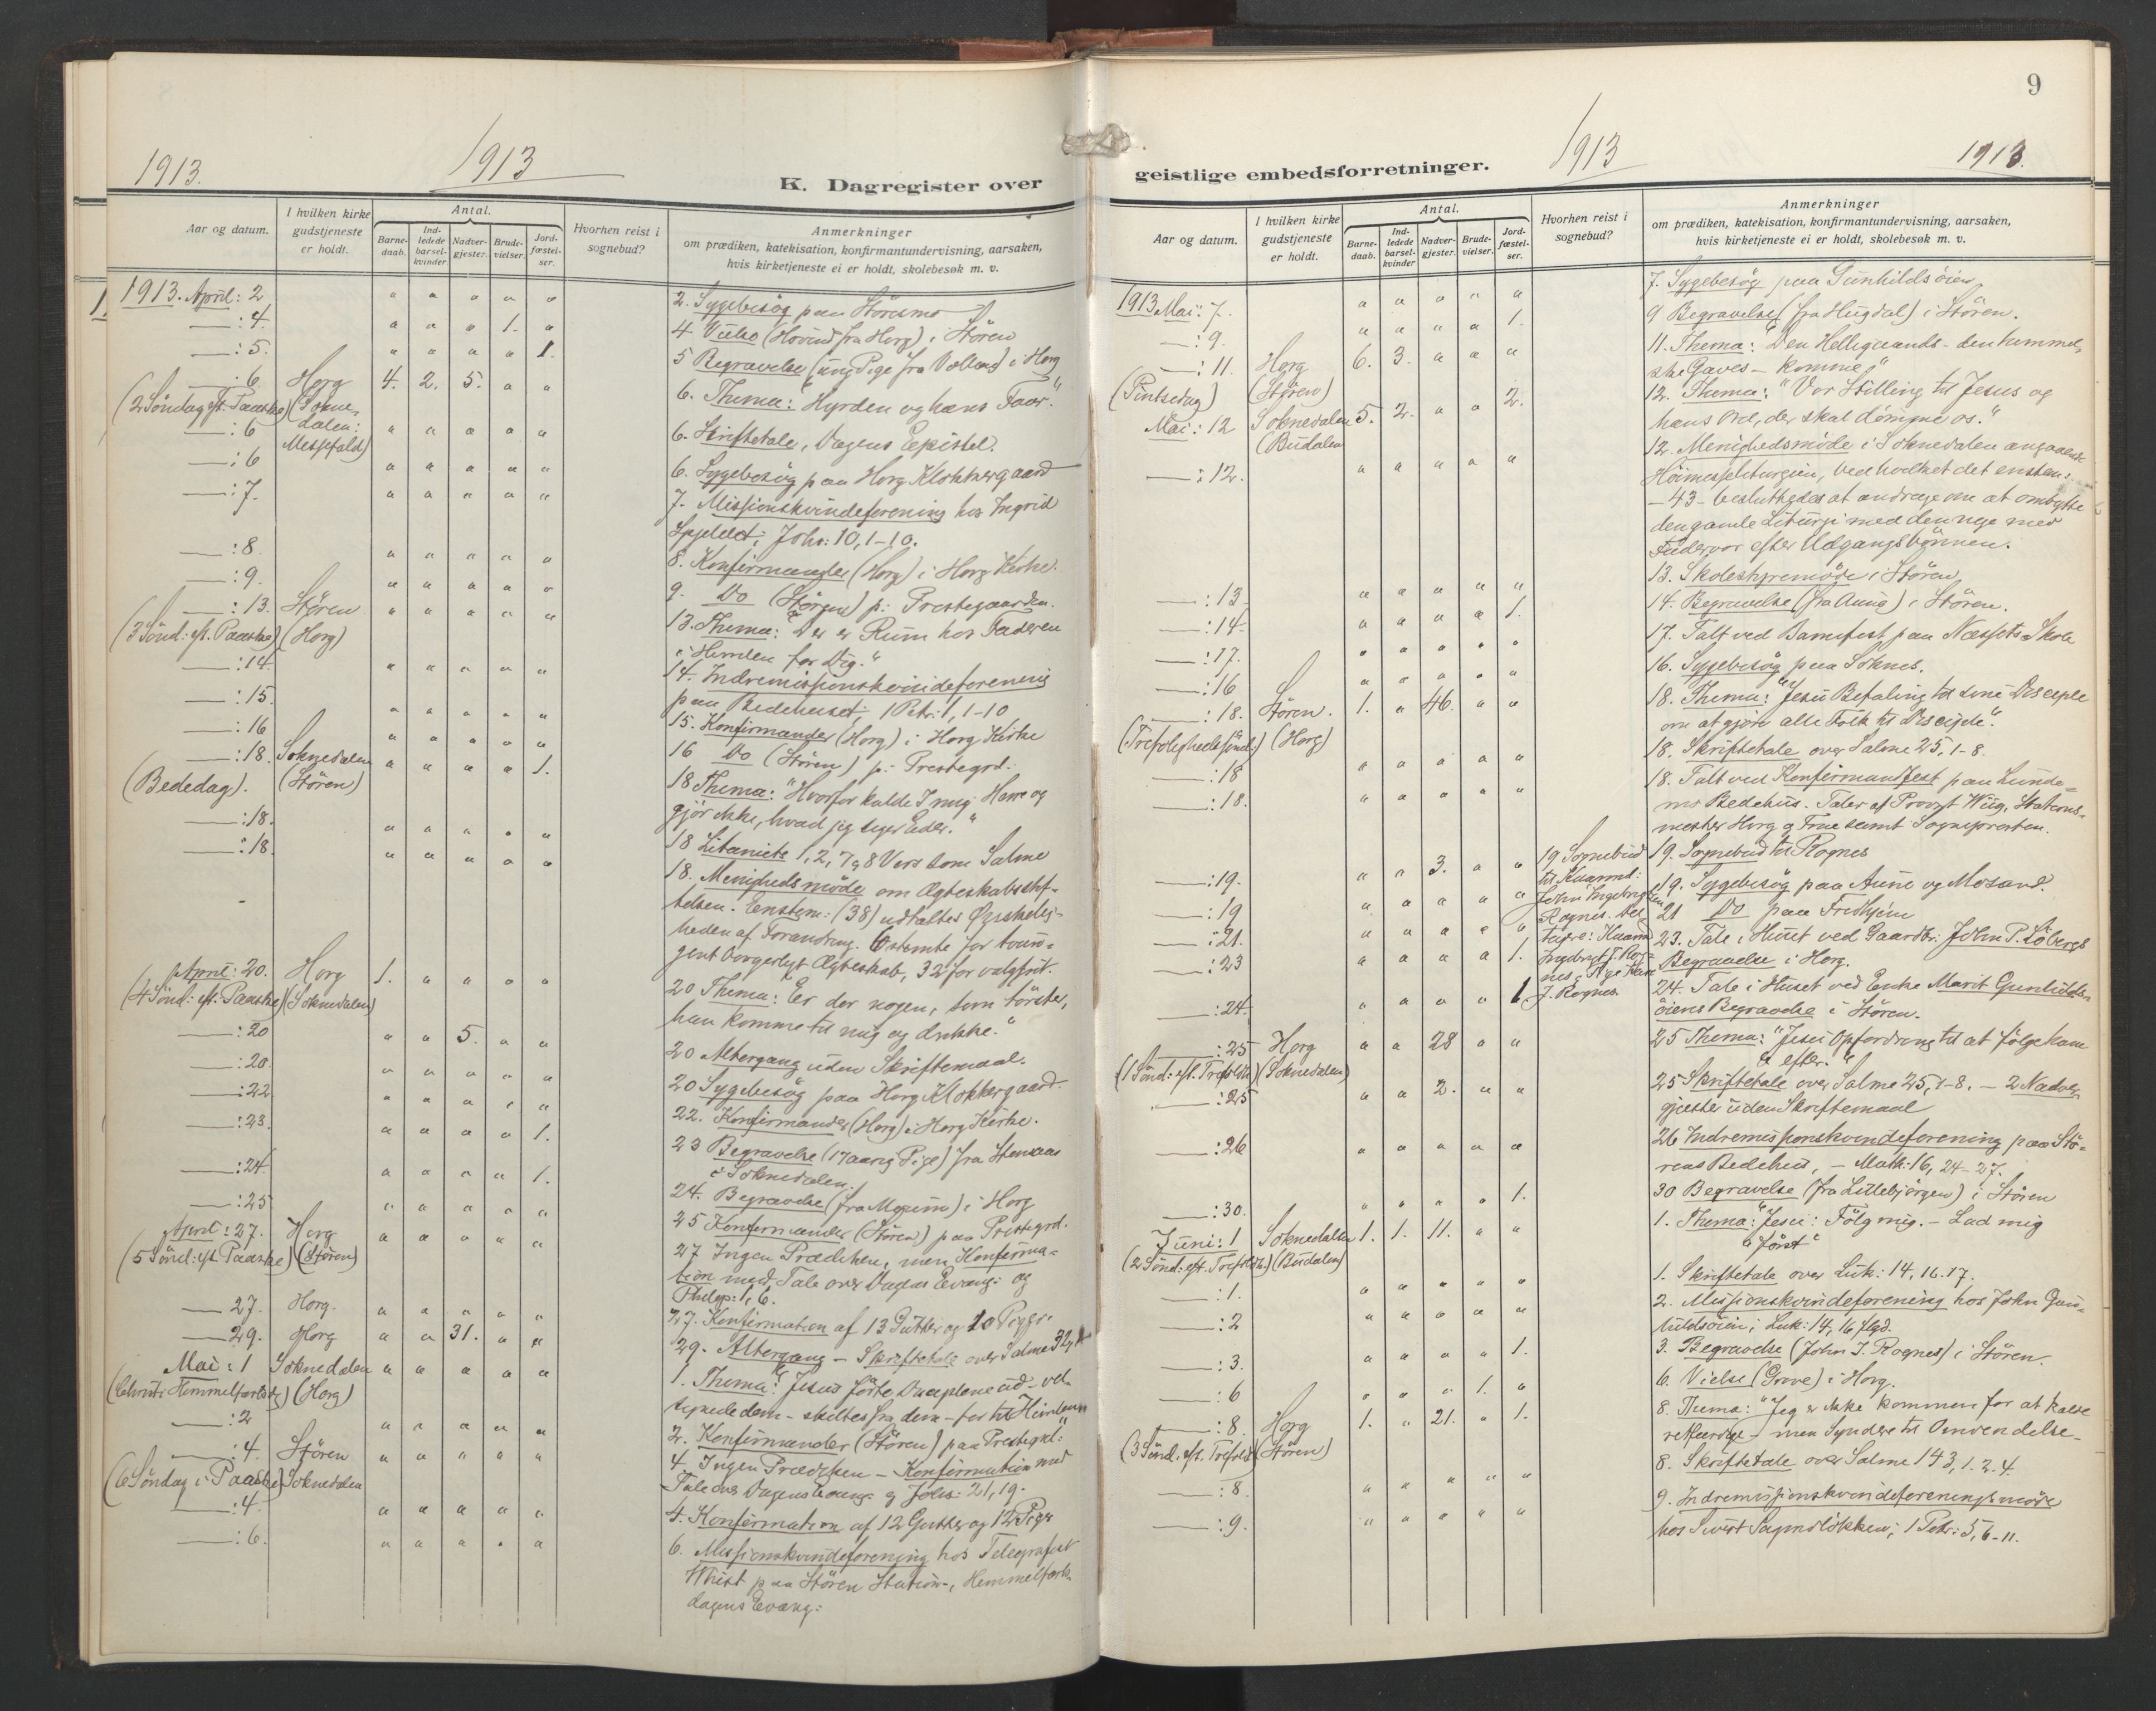 1913.
1913
K. Dagregister over
Aar og datum.
I hvilken kirke gudstjeneste er holdt.
Antal.
Barne-daab.
Ind-ledede barsel-kvinder
Nadver-gjester.
Brude-vielser.
Jord-fæstel-ser.
Hvorhen reist i sognebud?
Anmerkninger
om prædiken, katekisation, konfirmantundervisning, aarsaken,
hvis kirketjeneste ei er holdt, skolebesøk m. v.
1913. April: 2 " " " " " 2. Sygebesøg paa Størenmo
—:4. " " " 1. " 4 Vielse (Hovind fra Horg) i Støren
—:5. " " " " 1. 5 Begravelse (ung Pige fra Volland) i Horg
—:6. Horg 4. 2. 5. " " 6. Thema: "Hyrden og hans Faar".
(2 Söndag eft. Paaske) (Soknedalen: Messefald)
—:6 " " " " " 6. Skriftetale, Dagens Epistel.
—:6 " " " " " 6. Sygebesøg paa Horg Klokkergaard
—:7. " " " " " 7. Missionskvindeforening hos Ingrid
Spjeldet; Johs: 10, 1-10.
—:8. " " " " " 8. Konfirmander (Horg) i Horg Kirke.
—:9. " " " " " 9. Do (Støren) p: Prestegaarden.
—:13. Støren " " " " " 13. Thema: "Der er Rum hos Faderen
(3 Sönd: eft. Paaske) (Horg) i Himlen for Dig."
—:14. " " " " " 14. Indremissionskvindeforening
paa Bedehuset; 1 Petr: 1, 1-10
—:15. " " " " " 15. Konfirmander (Horg) i Horg Kirke
—:16 " " " " " 16 Do (Støren) p: Prestegrd:
—:18. Soknedalen " " " " 1. 18 Thema: "Hvorfor kalde I mig Herre og
(Bededag). (Støren) gjör ikke, hvad jeg siger Eder."
—:18. " " " " " 18 Litaniets 1, 2, 7 og 8 Vers som Salme
—:18. " " " " " 18. Menighedsmøde om Ægteskabsstif-
telsen. Enstem: (38) udtaltes Ønskelig-
heden af Forandring. 6 stemte for tvun-
gent borgerligt Ægteskab, 32 for valgfrit.
April: 20. Horg 1. " " " " 20 Thema: "Er der nogen, som törster,
(4 Sönd: eft. Paaske) (Soknedalen) han komme til mig og drikke."
—:20 " " 5. " " 20 Altergang uden Skriftemaal.
—:20. " " " " " 20 Sygebesøg paa Horg Klokkergaard.
—:22 " " " " " 22. Konfirmander (Horg) i Horg Kirke.
—:23. " " " " 1. 23 Begravelse (17 aarig Pige) fra Stenaas
i Soknedalen.
—:24. " " " " 1. 24. Begravelse (fra Moum) i Horg
—:25 " " " " " 25 Konfirmander (Støren) paa Prestegrd.
April: 27. Horg " " " " " 27 Ingen Prædiken, men Konfirma-
(5 Sönd: eft. Paaske) (Støren) tion med Tale over Dagens Evang: og
Philip: 1, 6.
— 27. Horg. " " " " " 27. Konfirmation af 13 Gutter og 20 Piger.
— 29. Horg " " 31. " " 29. Altergang – Skriftetale over Salme 32, 1
Mai: 1 Soknedalen " " " " " 1. Thema: "Jesus förte Disciplene ud – vel-
(Christi Himmelfartsdg) (Horg) signede dem – skiltes fra dem – for til Himlen"
—:2 " " " " " 2. Konfirmander (Støren) paa Prestegrd:
—:4. Støren " " " " " 4 Ingen Prædiken – Konfirmation med
(6 Söndag i Paaske) Soknedalen Tale over Dagens Evang: og Johs: 21, 19.
—:4. " " " " " 4. Konfirmation af 12 Gutter og 12 Piger
—:6. " " " " " 6. Missionskvindeforening hos Telegrafist
Whist paa Støren Station, Himmelfarts-
dagens Evang:
9
1913
1913.
geistlige embedsforretninger.
Aar og datum.
I hvilken kirke gudstjeneste er holdt.
Antal.
Barne-daab.
Ind-ledede barsel-kvinder
Nadver-gjester.
Brude-vielser.
Jord-fæstel-ser.
Hvorhen reist i sognebud?
Anmerkninger
om prædiken, katekisation, konfirmantundervisning, aarsaken,
hvis kirketjeneste ei er holdt, skolebesøk m. v.
1913 Mai: 7. " " " " " 7. Sygebesøg paa Gunhildsöien
—:9. " " " " 1. 9 Begravelse (fra Hugdal) i Støren.
—:11. Horg 6. 3. " " " 11. Thema: "Den Helligaands – den himmel-
(Pintsedag) (Støren) ske Gaves – Komme"
Mai: 12 Soknedalen 5. 2. " " 2. 12. Thema: "Vor Stilling til Jesus og
(Budalen) hans Ord, der skal dömme os."
—:12. " " " " " 12. Menighedsmøde i Soknedalen angaaende
Höimesseliturgien, ved hvilket det enstem:
– 43 – besluttedes at andrage om at ombytte
den gamle Liturgi med den nye med
Fadervor efter Udgangsbønnen.
—:13 " " " " " 13. Skolestyremøde i Støren
—:14. " " " " 1. 14. Begravelse (fra Aung) i Støren.
—:17. " " " " " 17. Talt ved Barnefest paa Næssets Skole
—:16 " " " " " 16. Sygebesøg paa Soknes.
—:18. Støren. 1. " 46. " " 18. Thema: "Jesu Befaling til sine Disciple
(Trefoldighedssönd:) (Horg) om at gjöre alle Folk til Disciple."
—:18 " " " " " 18. Skriftetale over Salme 25, 1-8.
—:18. " " " " " 18. Talt ved Konfirmandfest paa Lunde-
mo Bedehus. Taler af Provst Wiig, Stations-
mester Horg og Frue samt Sognepresten.
—:19. " " 3. " " 19 Sognebud 19. Sognebud til Rognes
til Kaarmd:
—:19 " " " " " John Ingebrigtsen 19. Sygebesøg paa Aune og Mosand.
Rognes. Del-
—:21. " " " " " tagere: Kaarmd 21 Do paa Fredhjem
—:23 " " " " 1. Ingebrigt J. Rog- 23. Tale i Huset ved Gaardbr: John P. Löbergs
nes, Pige Kari Begravelse i Horg.
—:24. " " " " 1. J. Rognes. 24. Tale i Huset ved Enke Marit Gunhilds-
öiens Begravelse i Støren.
—:25 Horg " " 28 " " 25 Thema: "Jesu Opfordring til at følge ham
(1 Sönd: eft. Trefoldh) (Soknedalen) efter."
—:25 " " 2. " " 25 Skriftetale over Salme 25, 1-8. – 2 Nadver-
gjester uden Skriftemaal
—:26 " " " " " 26 Indremissionskvindeforening paa Stö-
rens Bedehus, – Math: 16, 24-27.
—:30. " " " " 1. 30 Begravelse (fra Littlebjørgen) i Støren
Juni: 1 Soknedalen 1. 1. 11. " " 1. Thema: "Jesu: Fölg mig. – Lad mig
(2 Sönd: eft. Trefoldh.) (Budalen) "först"
—:1. " " " " " 1. Skriftetale over Luk: 14, 16-17.
—:2 " " " " " 2. Missionskvindeforening hos John Gun-
hildsöien; Luk: 14, 16 flgd.
—:3. " " " " 1. 3. Begravelse (John I. Rognes) i Støren.
—:6 " " " 1. " 6. Vielse (Grove) i Horg.
—:8. Horg 1. " 21. " 1. 8. Thema: "Jeg er ikke kommen for at kalde
(3 Sönd: eft. Trefoldh) (Støren) retfærdige – men Syndere til Omvendelse –
—:8. " " " " " 8. Skriftetale over Salme 143, 1. 2. 4.
—:9. " " " " " 9. Indremissionskvindeforeningsmøde
hos Sivert ; 1 Petr: 5, 6-11.